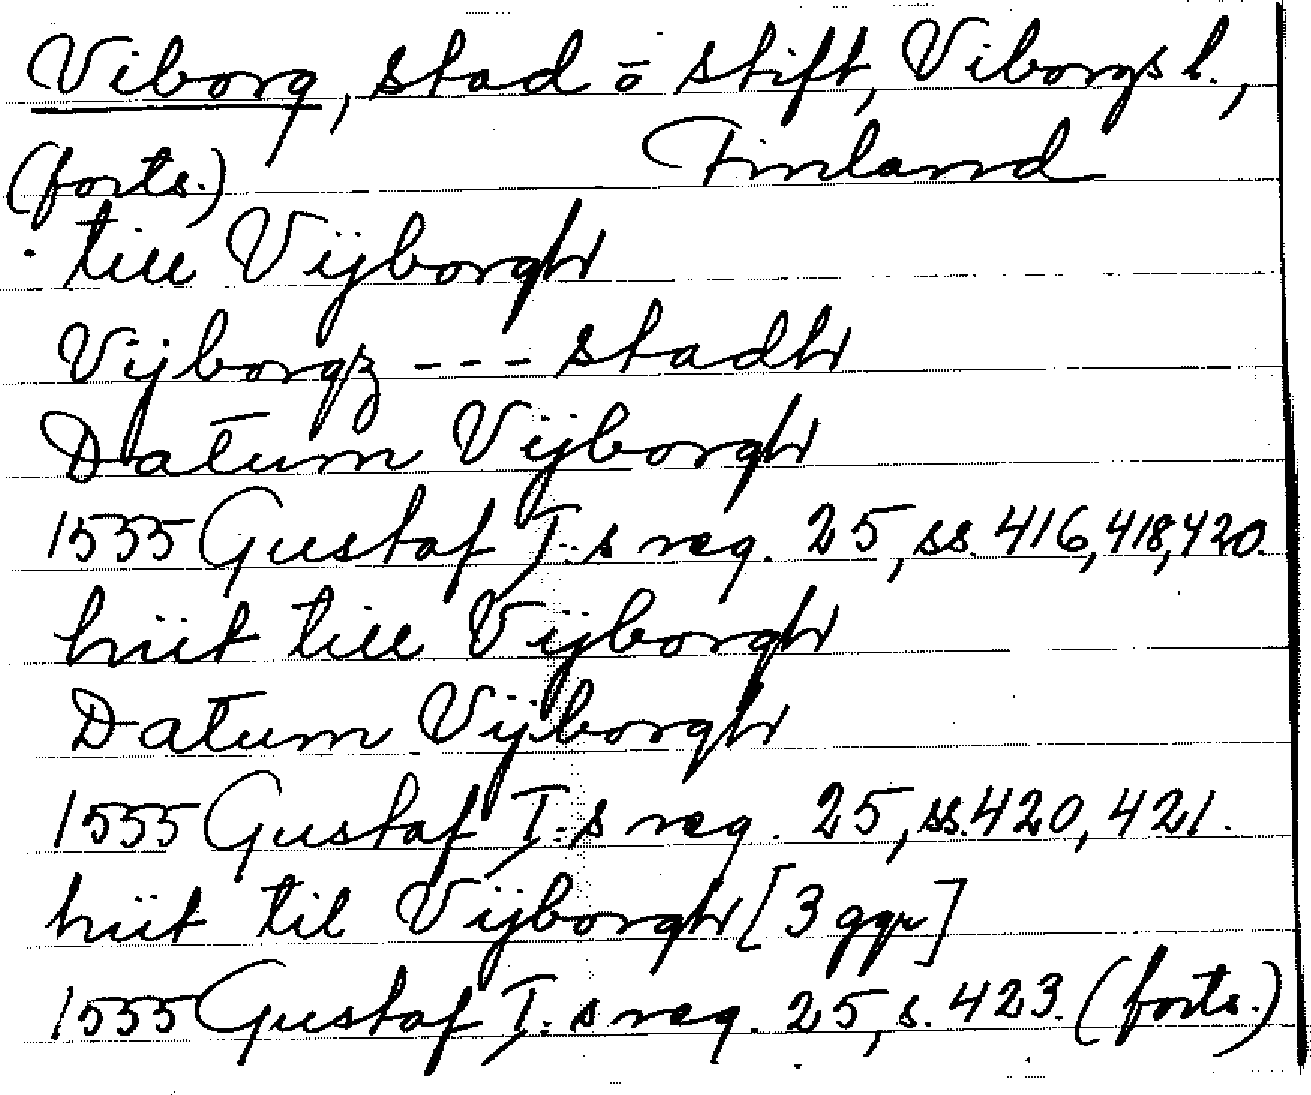 Viborg, stad o stift, Viborgs l.,
(forts.) Finland
till Vijborgh
Vijborgz --- stadh
Datum Vijborgh
1555 Gustaf I:s reg. 25, ss. 416, 418, 420.
hiit till Vijborgh
Datum Vijborgh
1555 Gustaf I:s reg. 25, ss. 420, 421.
hiit til Vijborgh [3 ggr]
1555 Gustaf I:s reg. 25, s. 423. (forts.)